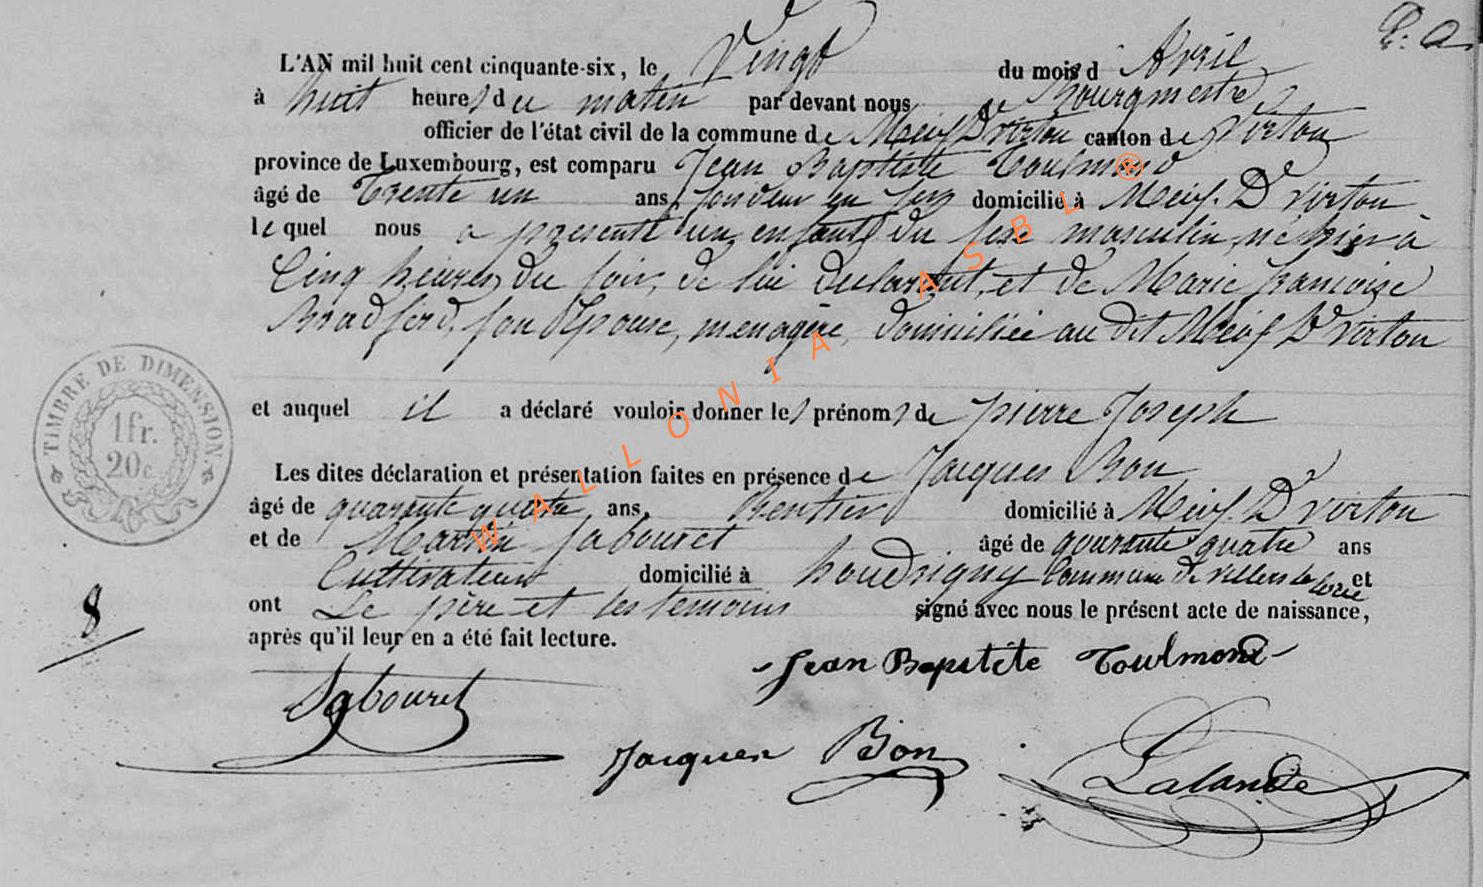 L'AN mil huit cent cinquante-six, le Vingt du mois d'Avril
à huit heures du matin par devant nous Bourgmestre
officier de l'état civil de la commune de Meix Dt virton canton de Virton
province de Luxembourg, est comparu Jean Baptiste Toulmond
âgé de Trente un ans, fondeur en fer, domicilié à Meix. Dt virton
lequel nous a présenté un enfant du sexe masculin, né hier à
Cinq heures du soir, de lui declarant, et de Marie françoise
Bradfer, son Epouse, menagère, domiciliée au dit Meix Dt virton
et auquel il a déclaré vouloir donner les prénoms de pierre Joseph
Les dites déclaration et présentation faites en présence de Jacques Bon
âgé de quarante quatre ans, Rentier domicilié à Meix. Dt virton
et de Martin Jabouret âgé de quarante quatre ans
Cultivateur domicilié à houdrigny Commune de villers la loue et
ont Le père et les temoins signé avec nous le présent acte de naissance,
après qu'il leur en a été fait lecture.
TIMBRE DE DIMENSION
1fr.
20c
8
Jean Baptiste Toulmond
Jabouret
Jacques Bon
Lalande
WALLONIA ASBL ®